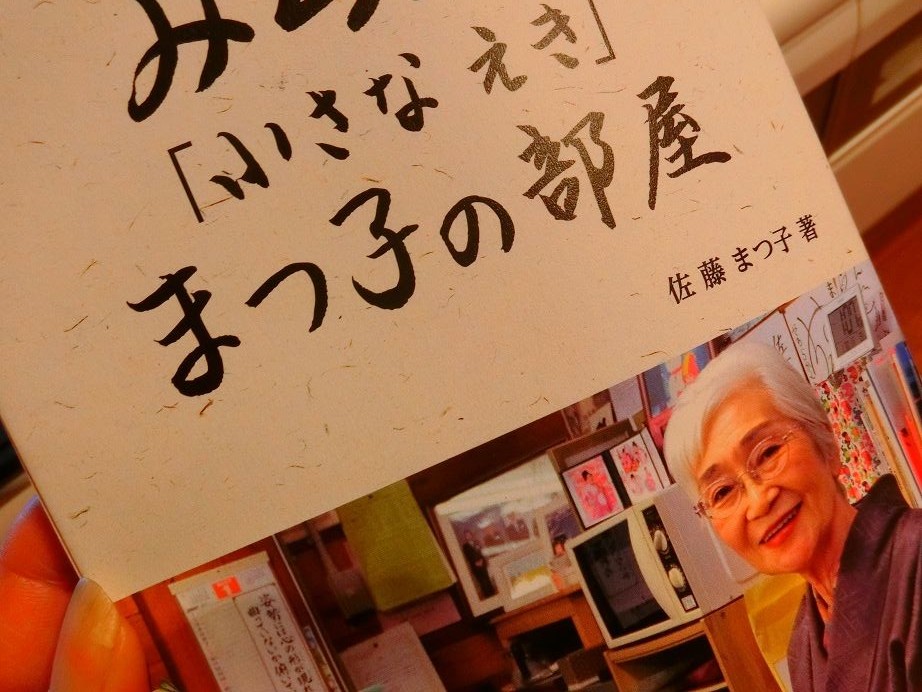 「小さな えき」
まつ子の部屋
佐藤 まつ子 著